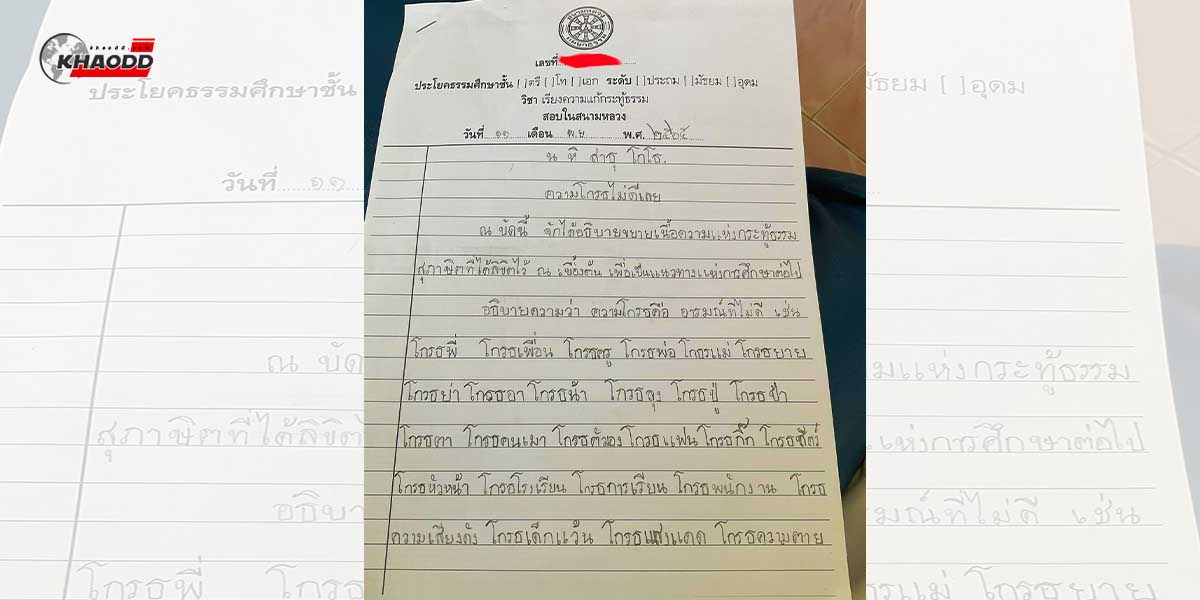 khaodd.com
KHAODD
สนามหลวง
แผนกธรรม
เลขที่
ประโยคธรรมศึกษาชั้น [ ]ตรี [ ]โท [ ]เอก ระดับ [ ]ประถม [ ]มัธยม [ ]อุดม
วิชา เรียงความแก้กระทู้ธรรม
สอบในสนามหลวง
วันที่ ๑๑ เดือน พ.ย พ.ศ. ๒๕๖๕
น หิ สาธุ โกโธ.
ความโกรธไม่ดีเลย
ณ บัดนี้ จักได้อธิบายขยายเนื้อความแห่งกระทู้ธรรม
สุภาษิตที่ได้ลิขิตไว้ ณ เบื้องต้น เพื่อเป็นแนวทางแห่งการศึกษาต่อไป
อธิบายความว่า ความโกรธคือ อารมณ์ที่ไม่ดี เช่น
โกรธพี่ โกรธเพื่อน โกรธครู โกรธพ่อ โกธรแม่ โกรธยาย
โกรธย่า โกรธอา โกรธน้า โกรธลุง โกรธปู่ โกรธป้า
โกรธตา โกรธคนเมา โกรธตัวเอง โกรธแฟน โกรธกิ๊ก โกรธสัตว์
โกรธหัวหน้า โกรธโรงเรียน โกรธการเรียน โกรธพนักงาน โกรธ
ความเสียงดัง โกรธเด็กแว้น โกรธแสงแดด โกรธความตาย